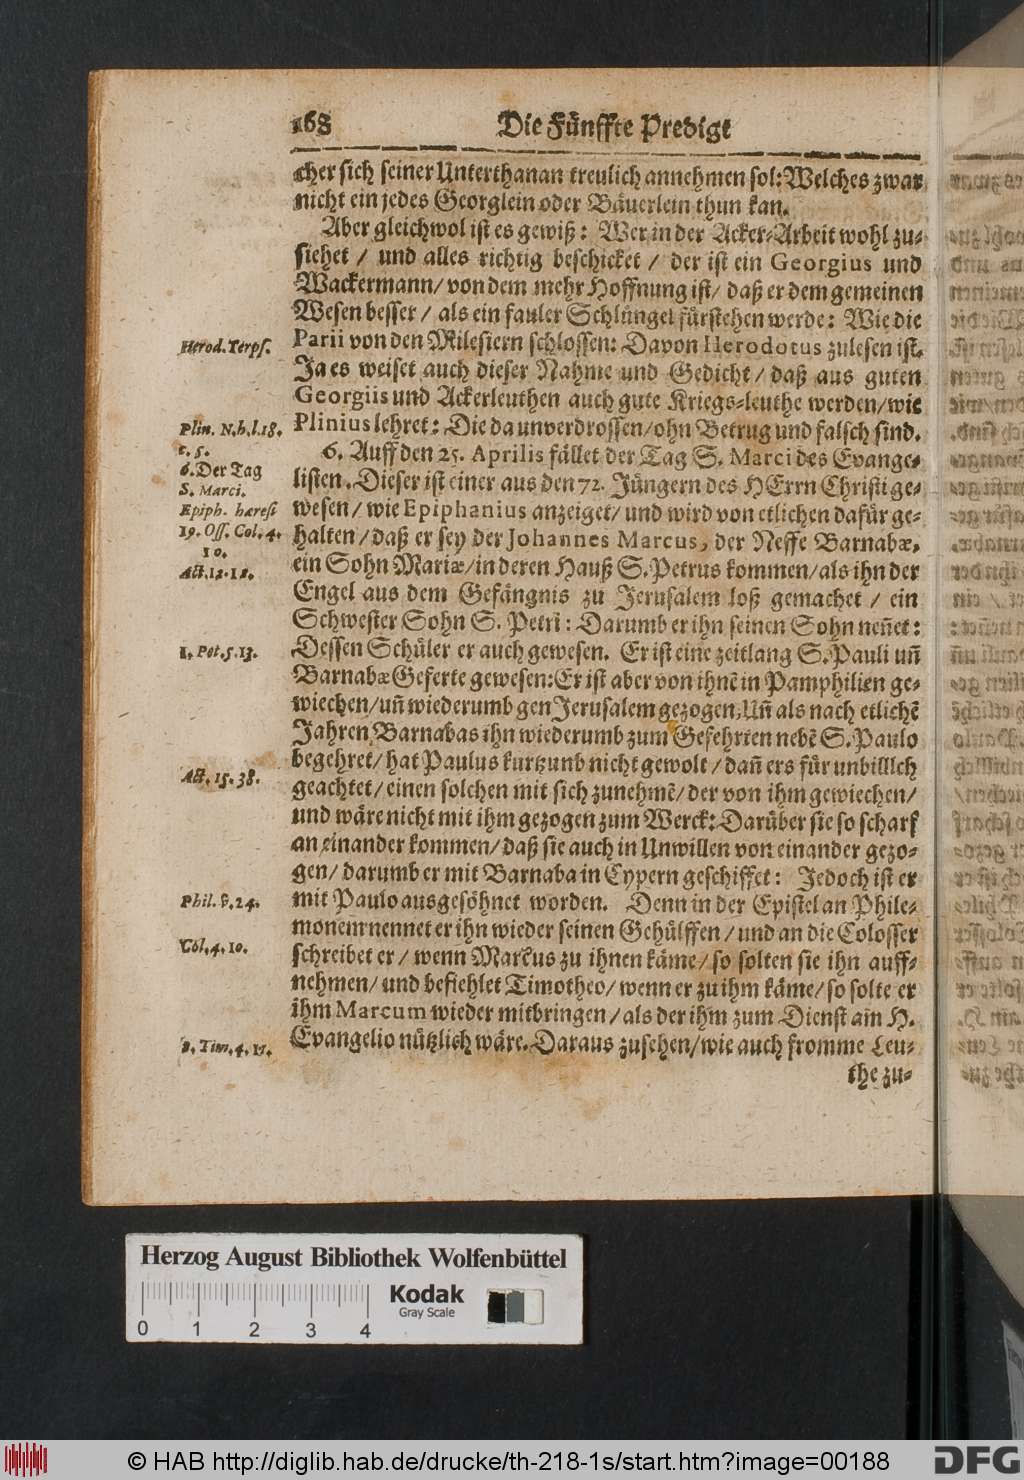 168 Die Fünffte Predigt
cher sich seiner Unterthanan treulich annehmen sol: Welches zwar
nicht ein jedes Georglein oder Bäuerlein thun kan.
Aber gleichwol ist es gewiß: Wer in der Acker-Arbeit wohl zu-
siehet / und alles richtig beschicket / der ist ein Georgius und
Wackermann / von dem mehr Hoffnung ist / daß er dem gemeinen
Wesen besser / als ein fauler Schlüngel fürstehen werde: Wie die
Herod. Terps.
Parii von den Milesiern schlossen: Davon Herodotus zulesen ist.
Ja es weiset auch dieser Nahme und Gedicht / daß aus guten
Georgiis und Ackerleuthen auch gute Kriegs-leuthe werden / wie
Plin. N. h. l. 18.
c. 5.
Plinius lehret: Die da unverdrossen / ohn Betrug und falsch sind.
6. Der Tag
S. Marci.
6. Auff den 25. Aprilis fället der Tag S. Marci des Evange-
listen. Dieser ist einer aus den 72. Jüngern des HErrn Christi ge-
Epiph. hæresi
wesen / wie Epiphanius anzeiget / und wird von etlichen dafür ge-
19. Off. Col. 4.
10.
halten / daß er sey der Johannes Marcus, der Neffe Barnabæ,
Act. 12. 12.
ein Sohn Mariæ / in deren Hauß S. Petrus kommen / als ihn der
Engel aus dem Gefängnis zu Jerusalem loß gemachet / ein
Schwester Sohn S. Petri: Darumb er ihn seinen Sohn neñet:
1. Pet. 5. 13.
Dessen Schüler er auch gewesen. Er ist eine zeitlang S. Pauli uñ
Barnabæ Geferte gewesen: Er ist aber von ihnẽ in Pamphilien ge-
wiechen / uñ wiederumb gen Jerusalem gezogen, Uñ als nach etlichẽ
Jahren Barnabas ihn wiederumb zum Gefehrten nebẽ S. Paulo
begehret / hat Paulus kurtzumb nicht gewolt / dañ ers für unbilllch
Act. 15. 38.
geachtet / einen solchen mit sich zunehmẽ / der von ihm gewiechen /
und wäre nicht mit ihm gezogen zum Werck: Darüber sie so scharf
an einander kommen / daß sie auch in Unwillen von einander gezo-
gen / darumb er mit Barnaba in Cypern geschiffet: Jedoch ist er
Phil. v. 24.
mit Paulo ausgesöhnet worden. Denn in der Epistel an Phile-
monem nennet er ihn wieder seinen Gehülffen / und an die Colosser
Col. 4. 10.
schreibet er / wenn Markus zu ihnen käme / so solten sie ihn auff-
nehmen / und befiehlet Timotheo / wenn er zu ihm käme / so solte er
ihm Marcum wieder mitbringen / als der ihm zum Dienst am H.
2. Tim. 4. 11.
Evangelio nützlich wäre. Daraus zusehen / wie auch fromme Leu-
the zu-
Herzog August Bibliothek Wolfenbüttel
Kodak
Gray Scale
0 1 2 3 4
© HAB http://diglib.hab.de/drucke/th-218-1s/start.htm?image=00188
DFG